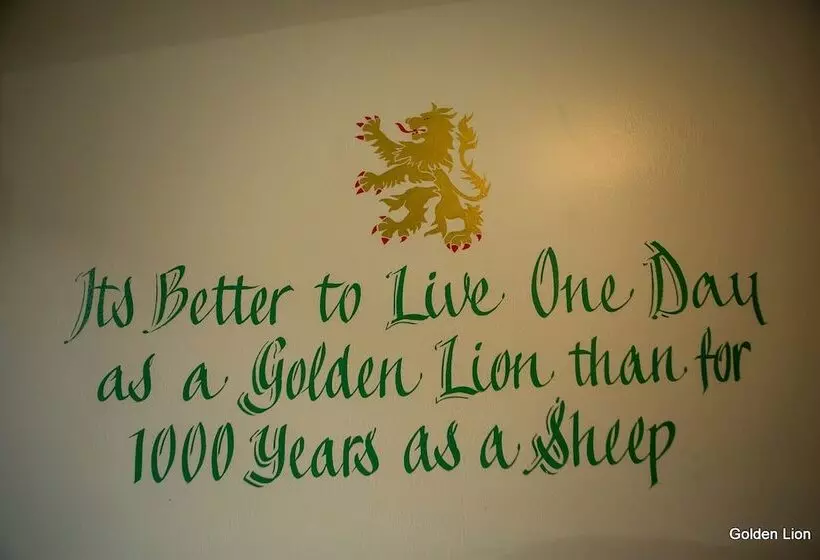 Its Better to Live One Day
as a Golden Lion than for
1000 Years as a Sheep
Golden Lion